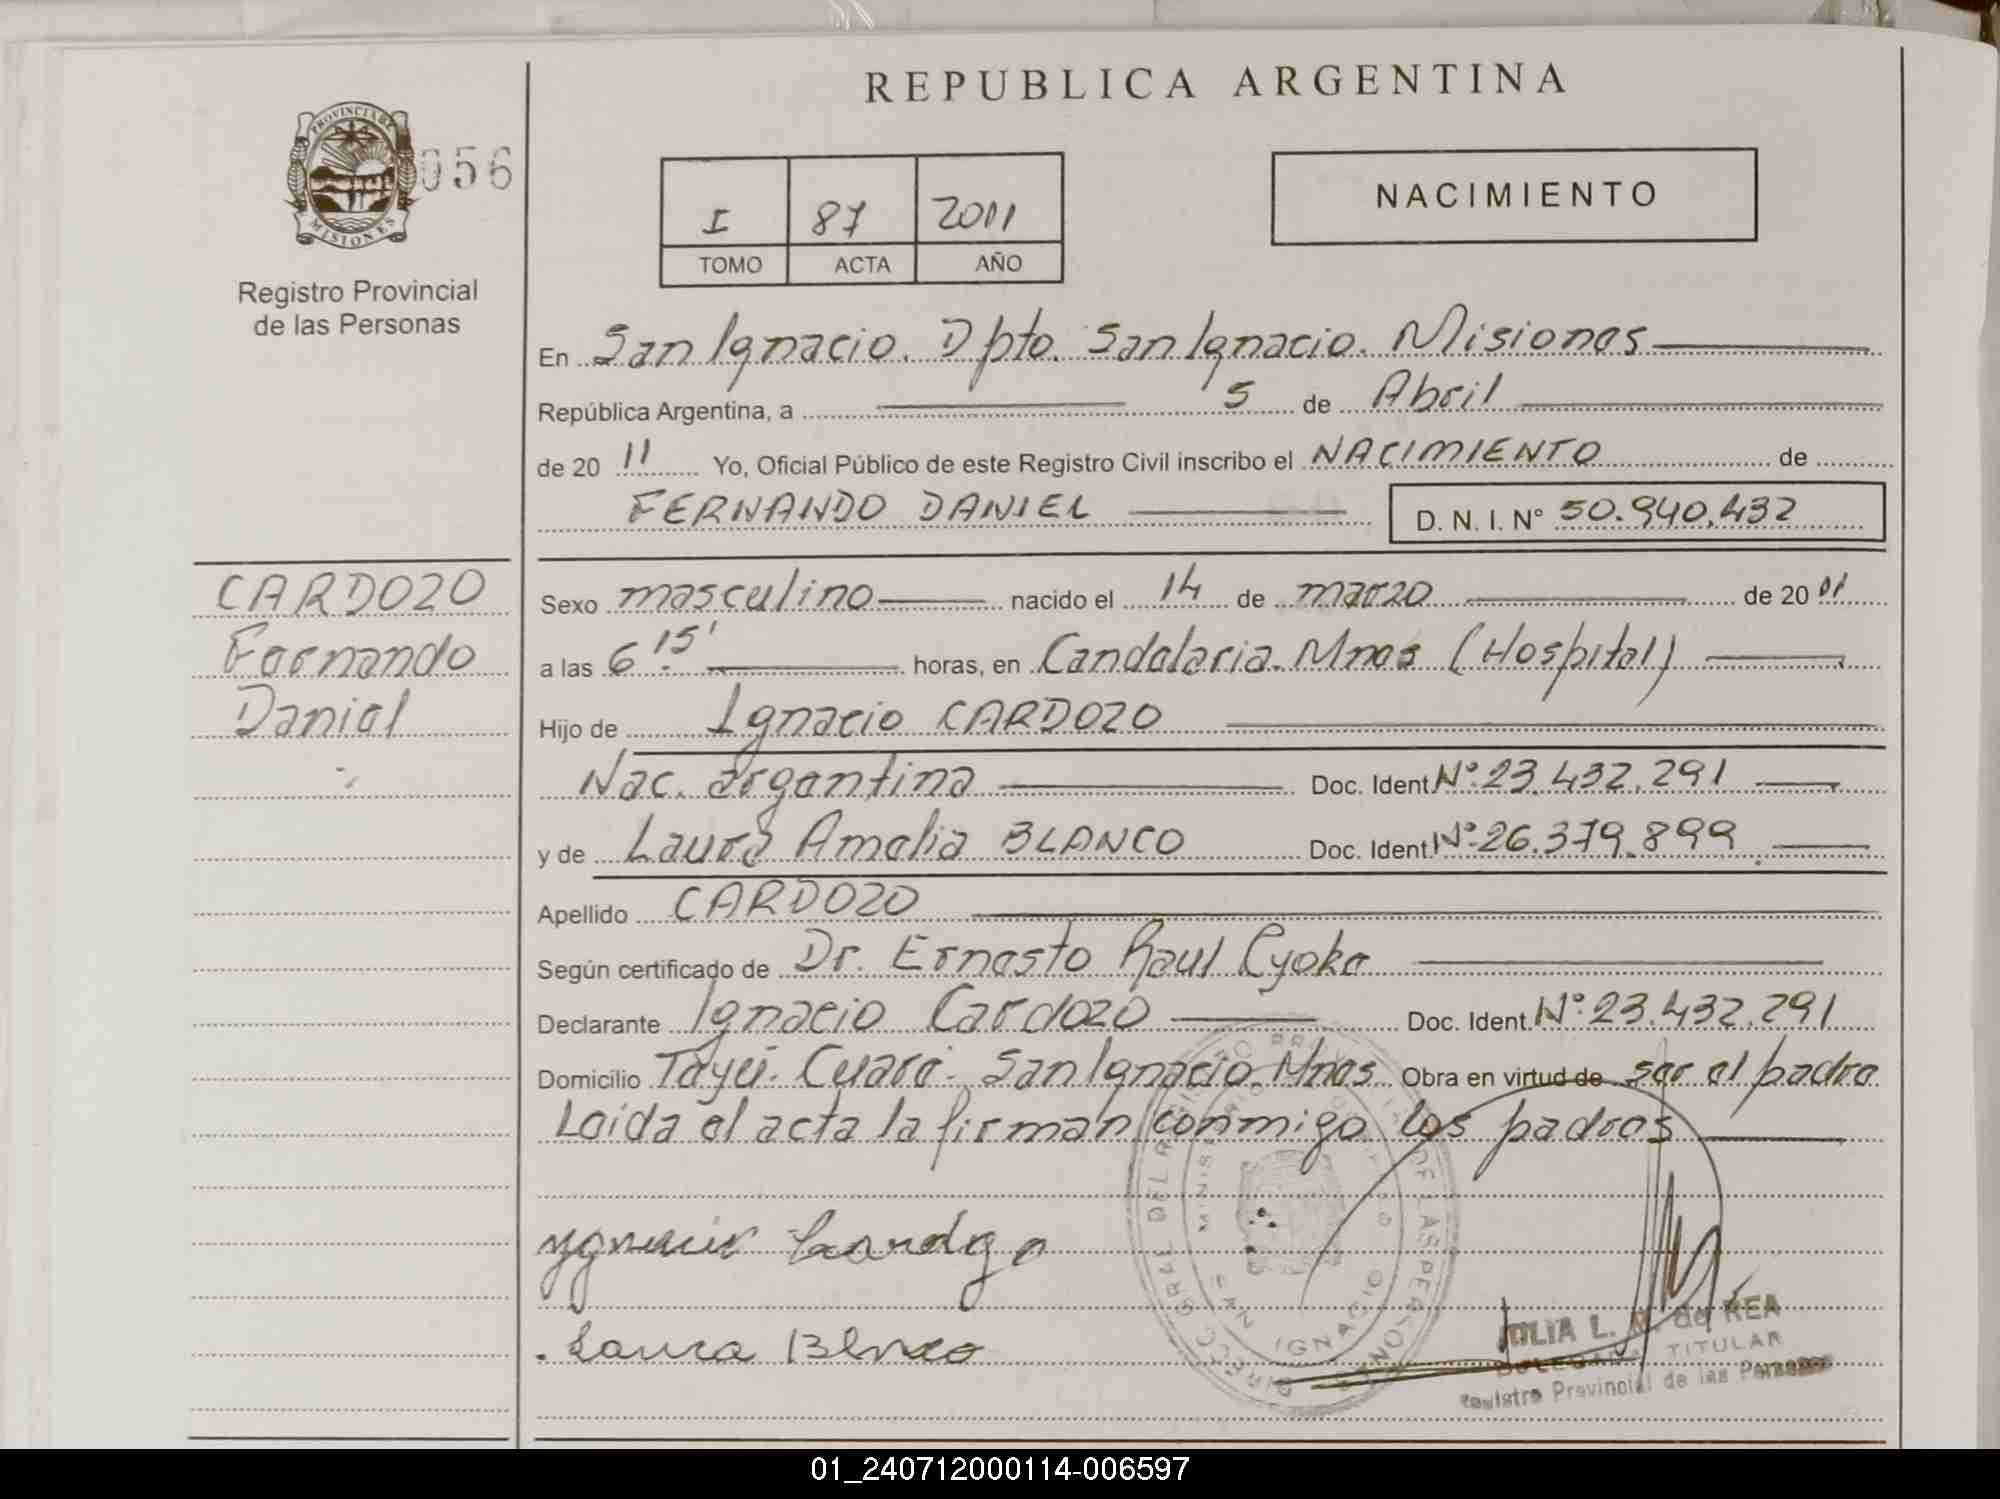 REPUBLICA ARGENTINA
PROVINCIA DE
MISIONES
056
Registro Provincial
de las Personas
I 87 2011
TOMO ACTA AÑO
NACIMIENTO
En San Ignacio. Dpto. San Ignacio. Misiones
República Argentina, a 5 de Abril
de 20 11 Yo, Oficial Público de este Registro Civil inscribo el NACIMIENTO de
FERNANDO DANIEL D. N. I. N° 50.940.432
CARDOZO
Fernando
Daniel
Sexo masculino nacido el 14 de marzo de 20 01
a las 6:15' horas, en Candelaria. Mnes (Hospital)
Hijo de Ignacio CARDOZO
Nac. argentina Doc. Ident N°. 23.432.291
y de Laura Amelia BLANCO Doc. Ident N°. 26.379.899
Apellido CARDOZO
Según certificado de Dr. Ernesto Raul
Declarante Ignacio Cardozo Doc. Ident. N°. 23.432.291
Domicilio Tayú. Cuaré. San Ignacio. Mnes Obra en virtud de ser el padre
Leida el acta la firman conmigo los padres
Ygnacio Cardozo
Laura Blnco
MINISTERIO DE GOBIERNO
SAN IGNACIO
JULIA L. de REA
DELEGADA TITULAR
Registro Provincial de las Personas
01_240712000114-006597